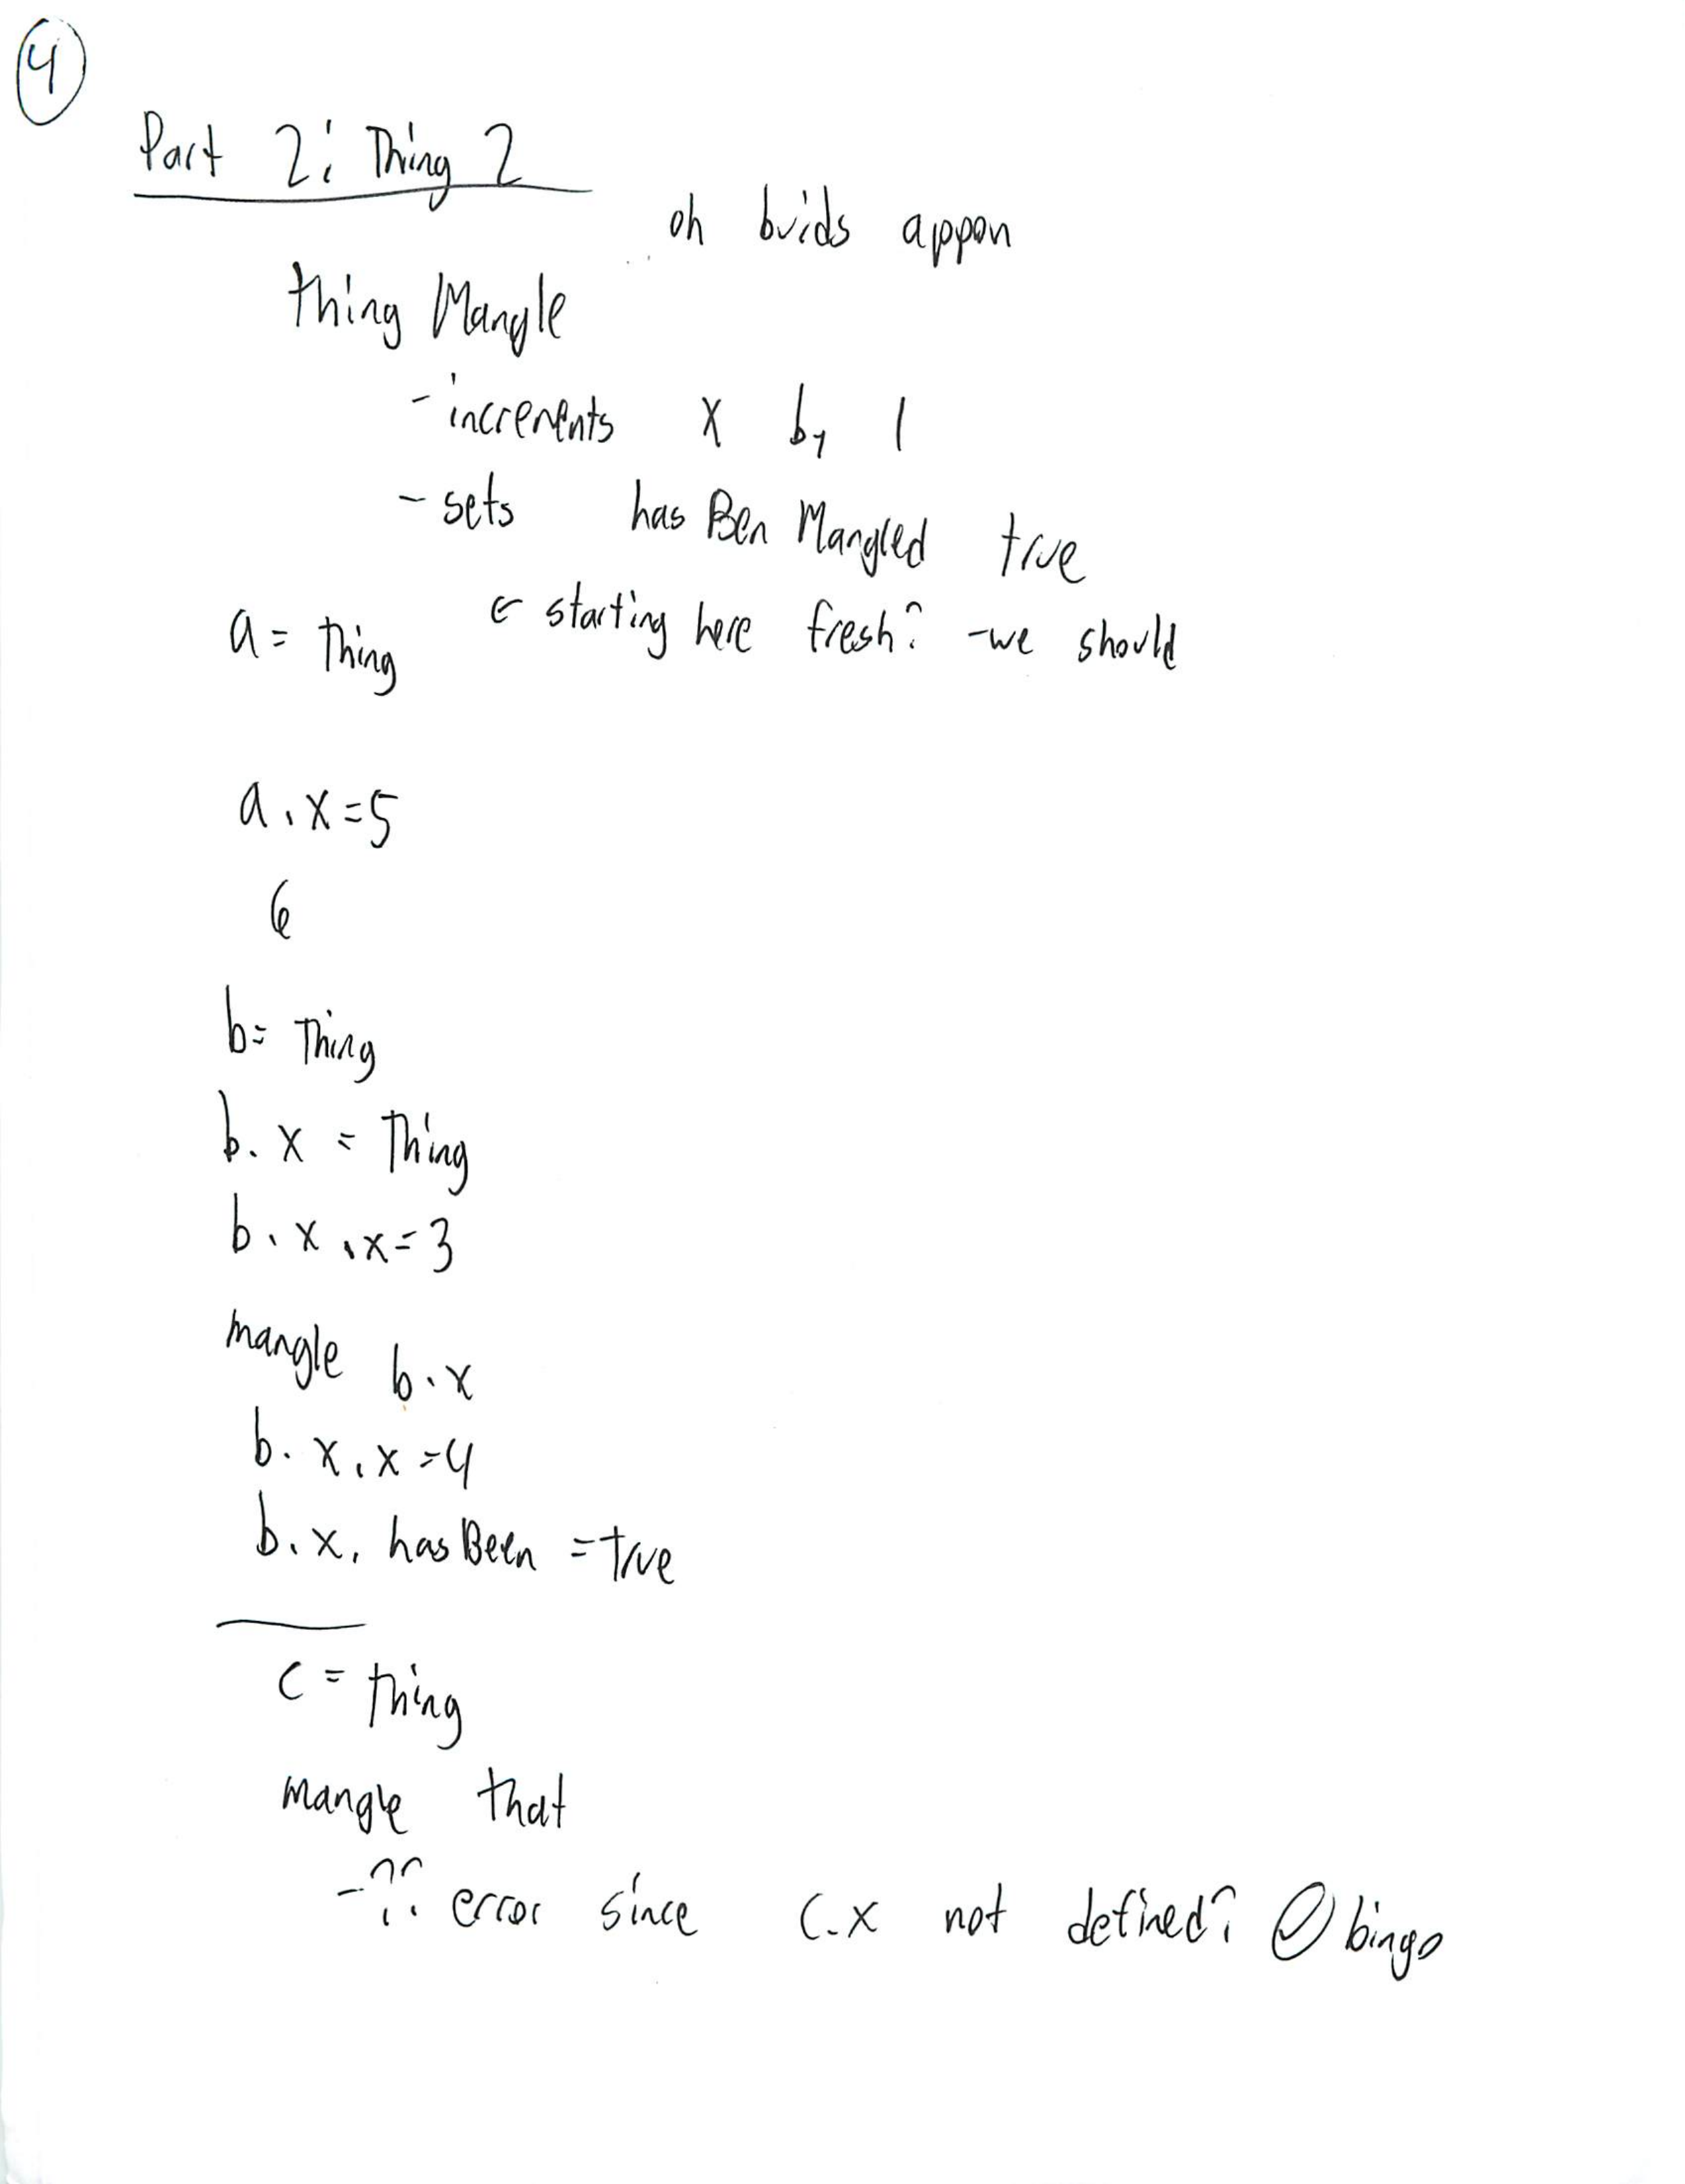 4
Part 2: Thing 2
oh buids appon
thing Mangle
- increments x by 1
- sets has Ben Mangled true
a = Thing ← starting here fresh? - we should
a.x = 5
6
b = Thing
b.x = Thing
b.x.x = 3
mangle b.x
b.x.x = 4
b.x. has Been = true
c = thing
mangle that
- ?? error since c.x not defined? ✓ bingo